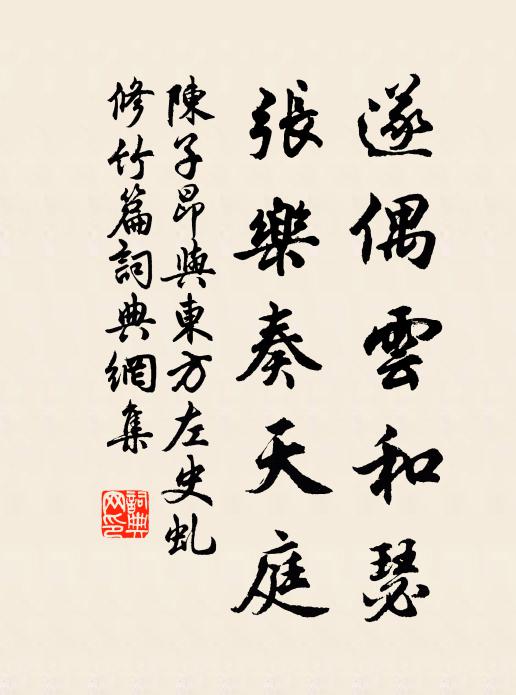 遂偶雲和瑟
張樂奏天庭
陳子昂與東方左史虬
修竹篇詞典網集
詞典網印